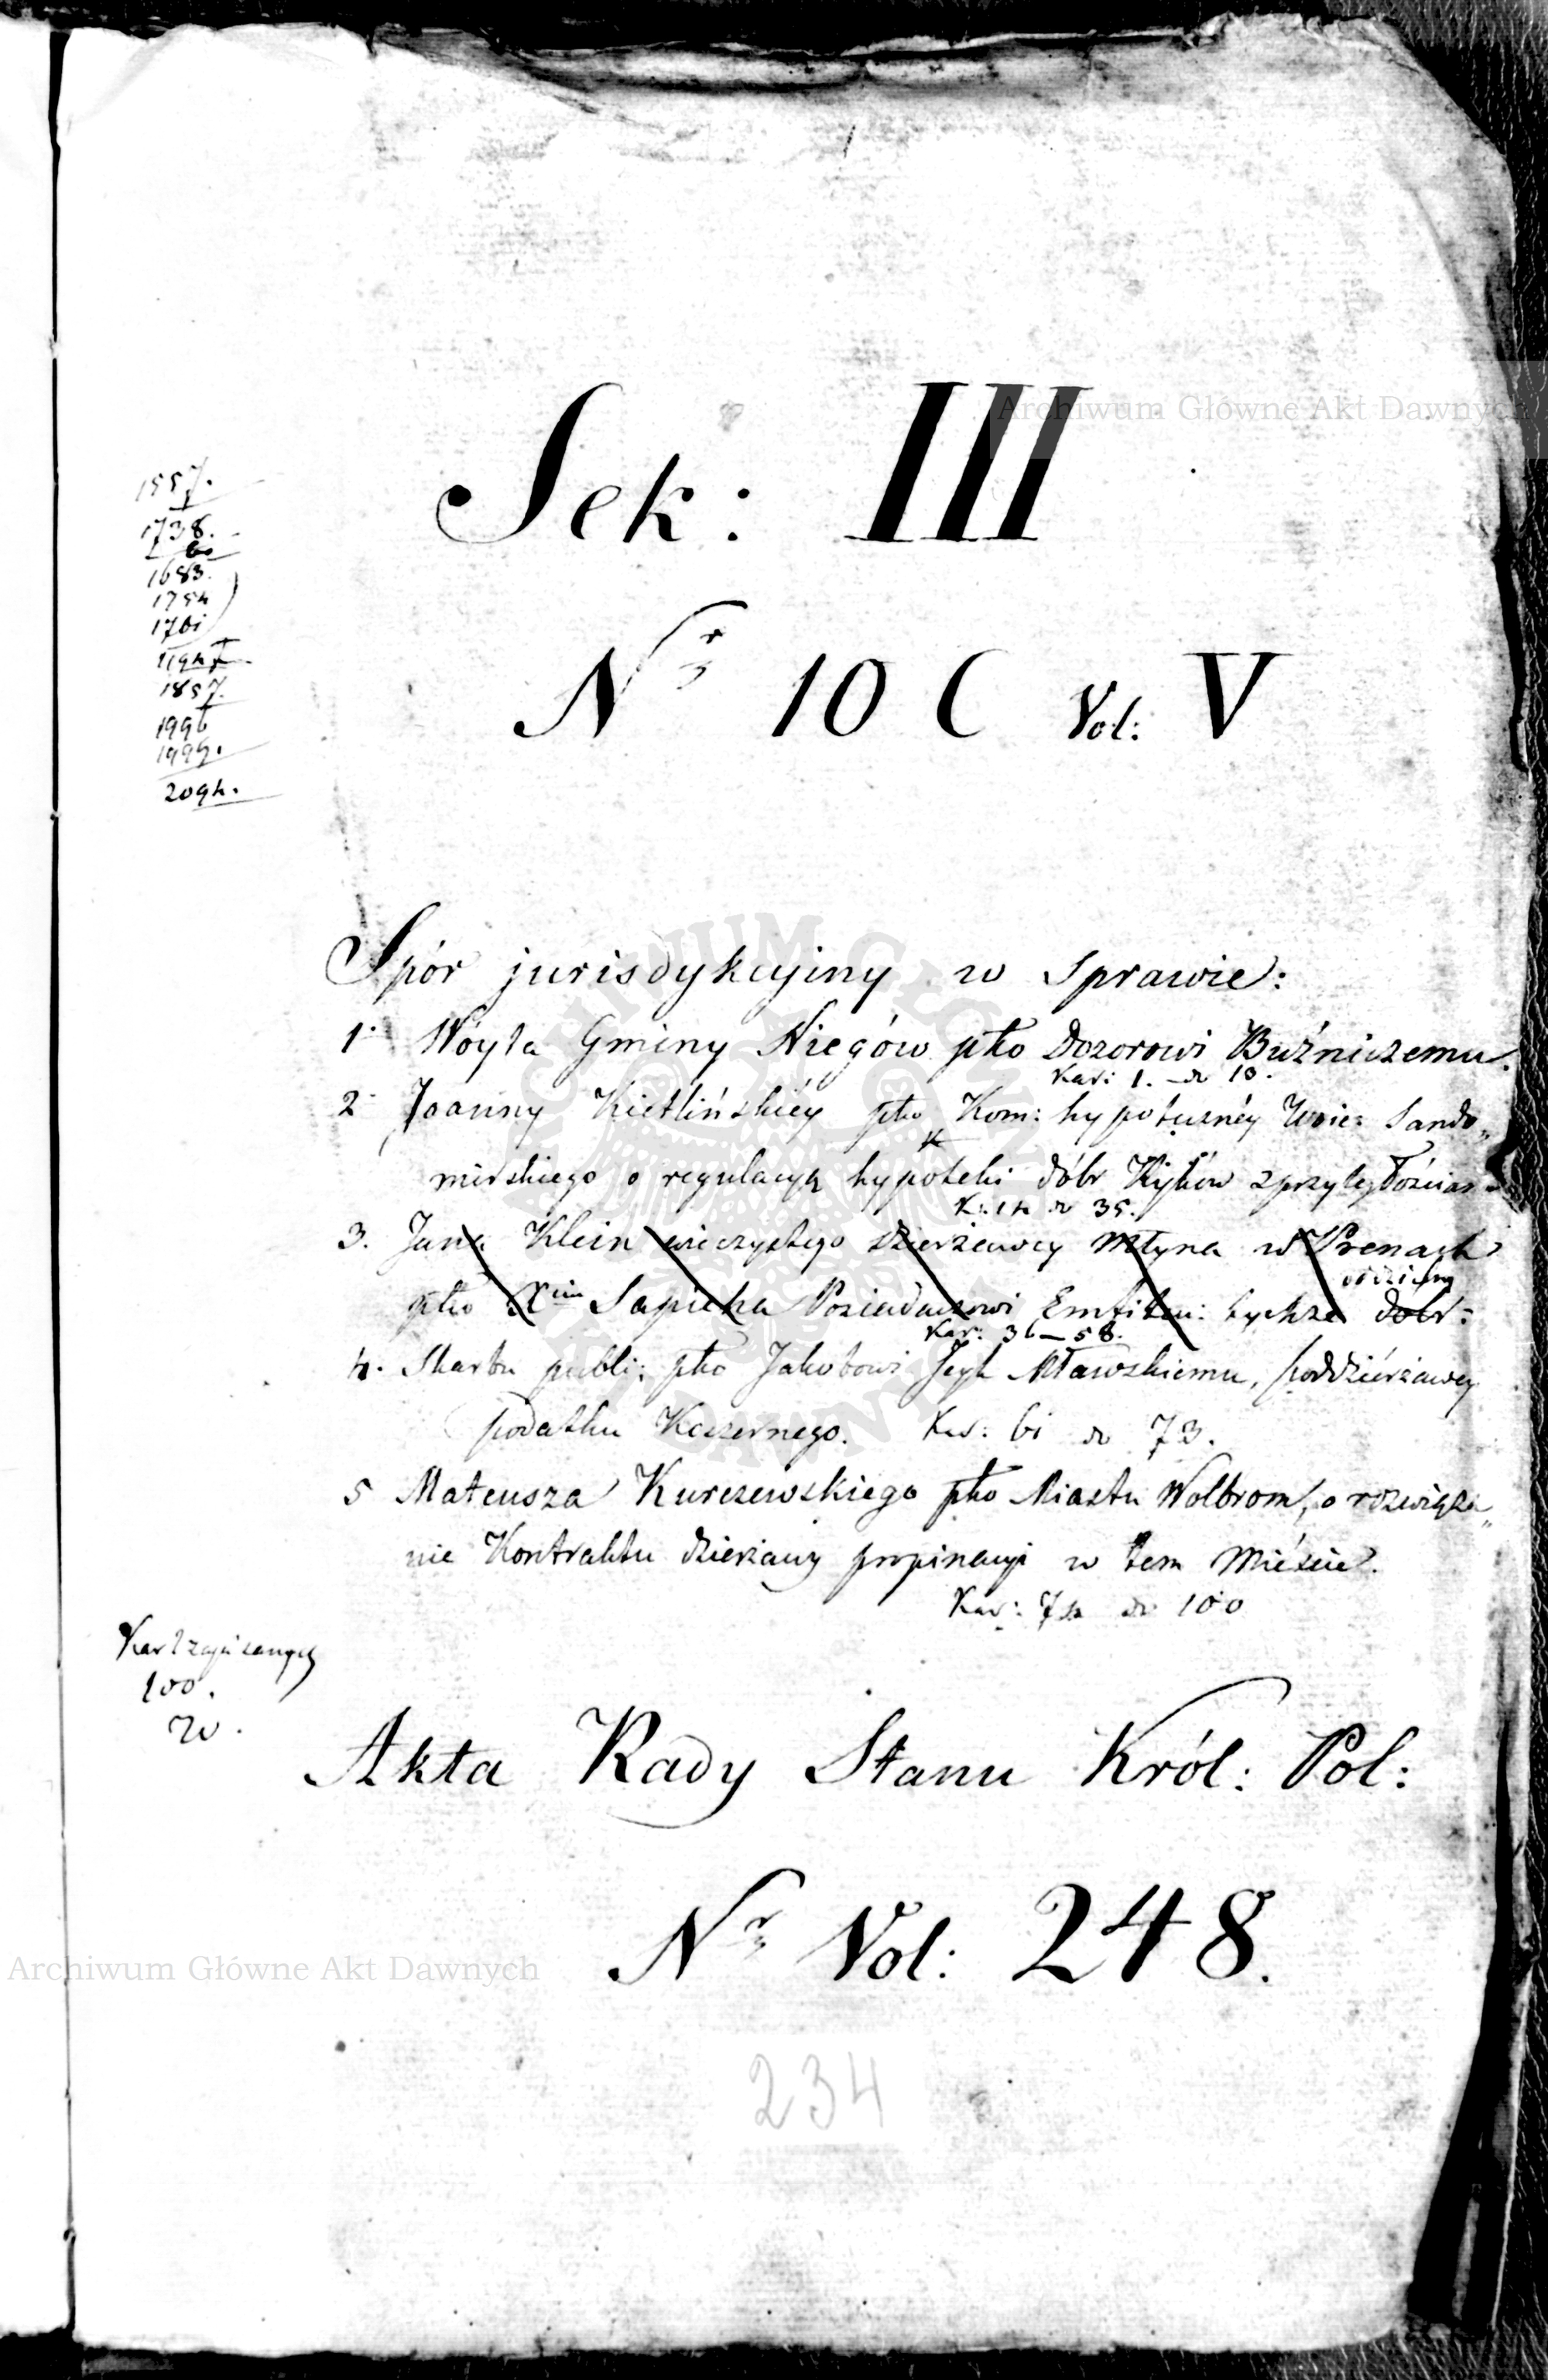 1
Archiwum Główne Akt Dawnych
Sek: III
Nr 10 C Vol: V
1557.
1738.
1683.
1754
1761
1947
1857.
1996
1999.
2094.
Spór jurisdykcyiny w sprawie:
1. Wóyta Gminy Niegów pko Dozorowi Buźniczemu.
Kar: 1. do 13.
2. Joanny Kietlińskiéy pko Kom: hypoteznéy Woie: Sando„
mirskiego o regulacyą hypoteki dóbr Kijów z przyległościam
K: 14 do 35.
3. Jana Klein wieczystego dzierżawcy Młyna w Prenach
pko Xciu Sapieha Posiadaczowi Emfiteu: tychże dobr:
odzielny
Kar: 36–58.
4. Skarbu publi: pko Jakobowi Jzyk Mławskiemu, poddzierżawcy
podatku Koszernego. Kar: 61 do 73.
5 Mateusza Kurczewskiego pko Miastu Wolbrom, o rozwiąza„
nie Kontraktu dzierżawy propinacyi w tem Mieście.
Kar: 74 do 100
Kart zapisanych
100.
Akta Rady Stanu Król: Pol:
Nr Vol: 248.
Archiwum Główne Akt Dawnych
234